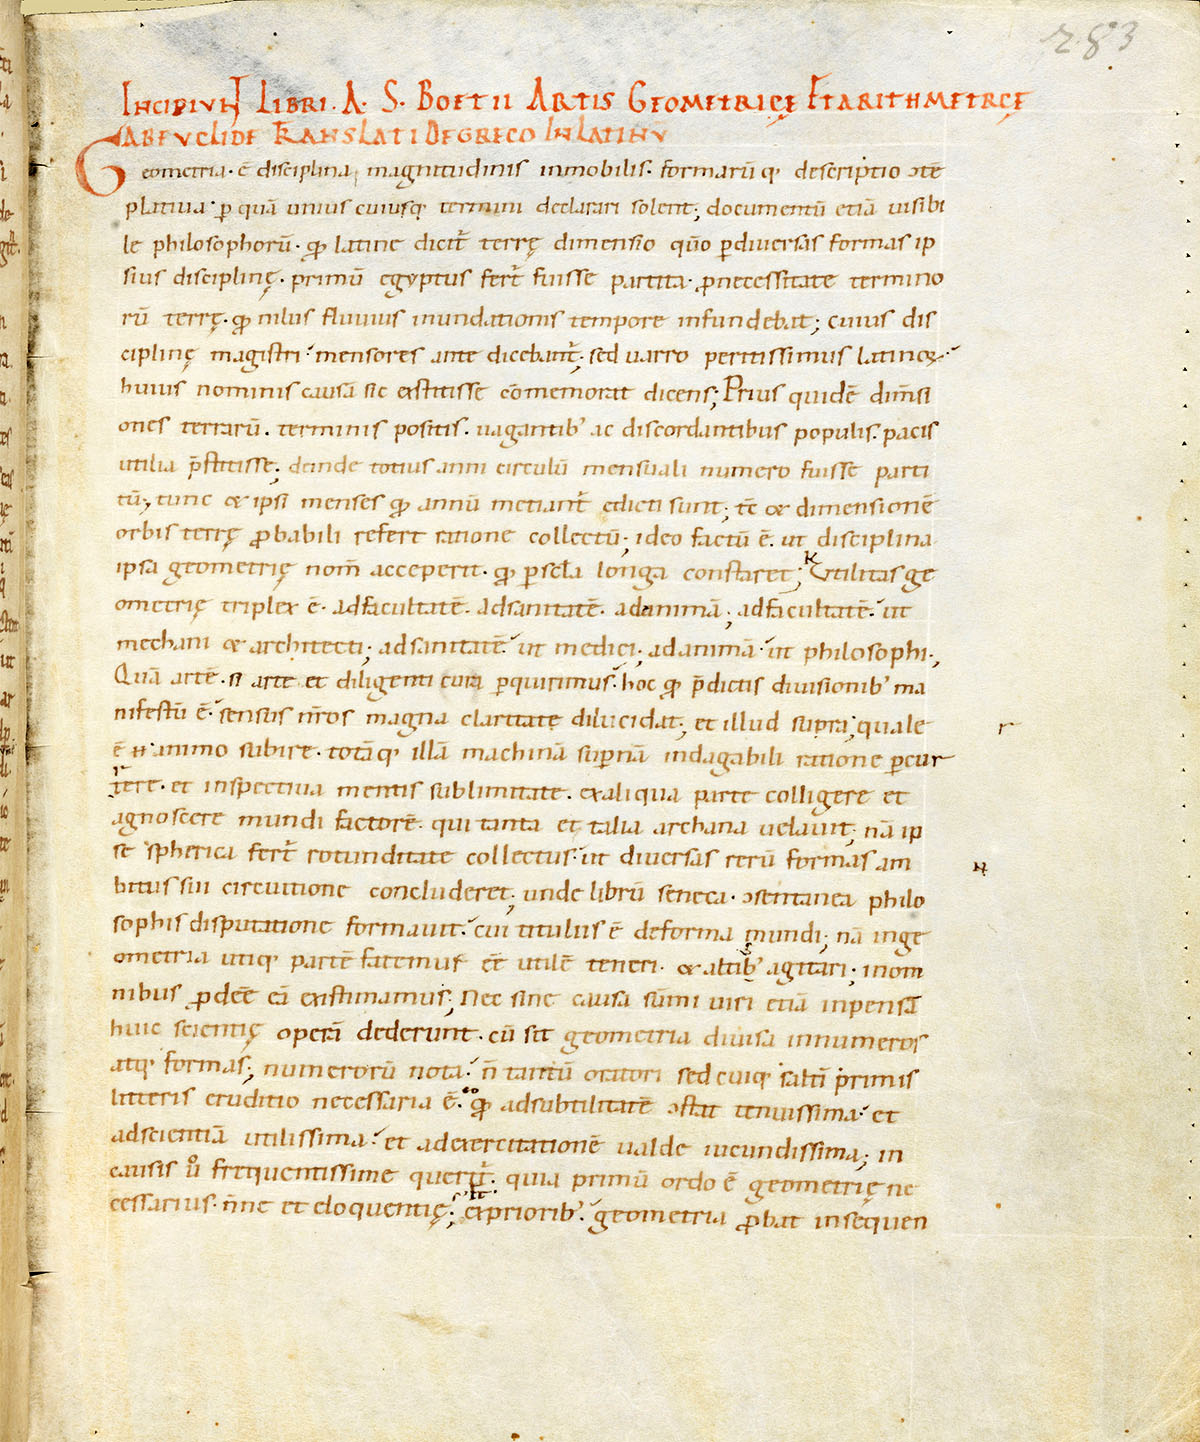 283
INCIPIUNT LIBRI. A. S. BOETII ARTIS GEOMETRICĘ ET ARITHMETRCĘ
AB EUCLIDE TRANSLATI DE GRECO IN LATINŪ
Geometria· ē disciplina magnitudinis inmobilis· formarūq; descriptio ɔtē
plativa· ꝑ quā unius cuiusq; termini declarari solent; documentū etiā visibi
le philosophorū· qđ latine dicit̄ terrę dimensio qūo ꝑ diversas formas ip
sius disciplinę· primū egyptus fert̄ fuisse partita· ꝓ necessitate termino
rū terrę· qđ nilus fluvius inundationis tempore infundebat; cuius dis
ciplinę magistri mensores ante dicebant̄; sed varro peritissimus latinoꝝ
huius nominis causā sic exstitisse cōmemorat dicens; Prius quidē dim̄si
ones terrarū· terminis positis· vagantib; ac discordantibus populis· pacis
utilia p̄stitisse; deinde totius anni circulū mensuali numero fuisse parti
tū; tunc & ipsi menses qđ annū metiant̄ edicti sunt; tc̄ & dimensionē
orbis terrę ꝓbabili refert ratione collectū; ideo factū ē· ut disciplina
ipsa geometrię nom̄ acceperit· qđ ꝑ scl̄a longa constaret; Utilitas ge
ometrię triplex ē· ad facultatē· ad sanitatē· ad animā; ad facultatē· ut
mechani & architecti; ad sanitatē· ut medici; ad animā· ut philosophi;
Quā artē· si arte et diligenti cura ꝑquirimus· hoc qđ p̄dictis divisionib; ma
nifestū ē· sensus nr̄os magna claritate dilucidat; et illud supra; quale
ē ħ animo subire· totāq; illā machinā supnā indagabili ratione ꝑcur
rere· et inspectiva mentis sublimitate· ex aliqua parte colligere et
agnoscere mundi factorē· qui tanta et talia archana velavit; nā ip
se spherica fert̄ rotunditate collectus· ut diversas rerū formas am
bitus sui circuitione concluderet; unde librū seneca· ɔsentanea philo
sophis disputatione formavit· cui titulus ē de forma mundi; nā in ge
ometria utiq; partē fatemur eē utilē teneri· & agitari; in om
nibus ꝓdeē eā existimamus; Nec sine causa sūmi viri etiā inpensā
huic scientię operā dederunt· cū sit geometria divisa in numeros
atq; formas; numerorū nota· n̄ tantū oratori sed cuiq; saltī primis
litteris eruditio necessaria ē· qđ ad subtilitatē ɔstat tenuissima· et
ad scientiā utilissima· et ad exercitationē valde iucundissima; in
causis v̊ frequentissime querit̄· quia primū ordo ē geometrię ne
cessarius· n̄ne et eloquentię; ex priorib;· geometria ꝓbat insequen